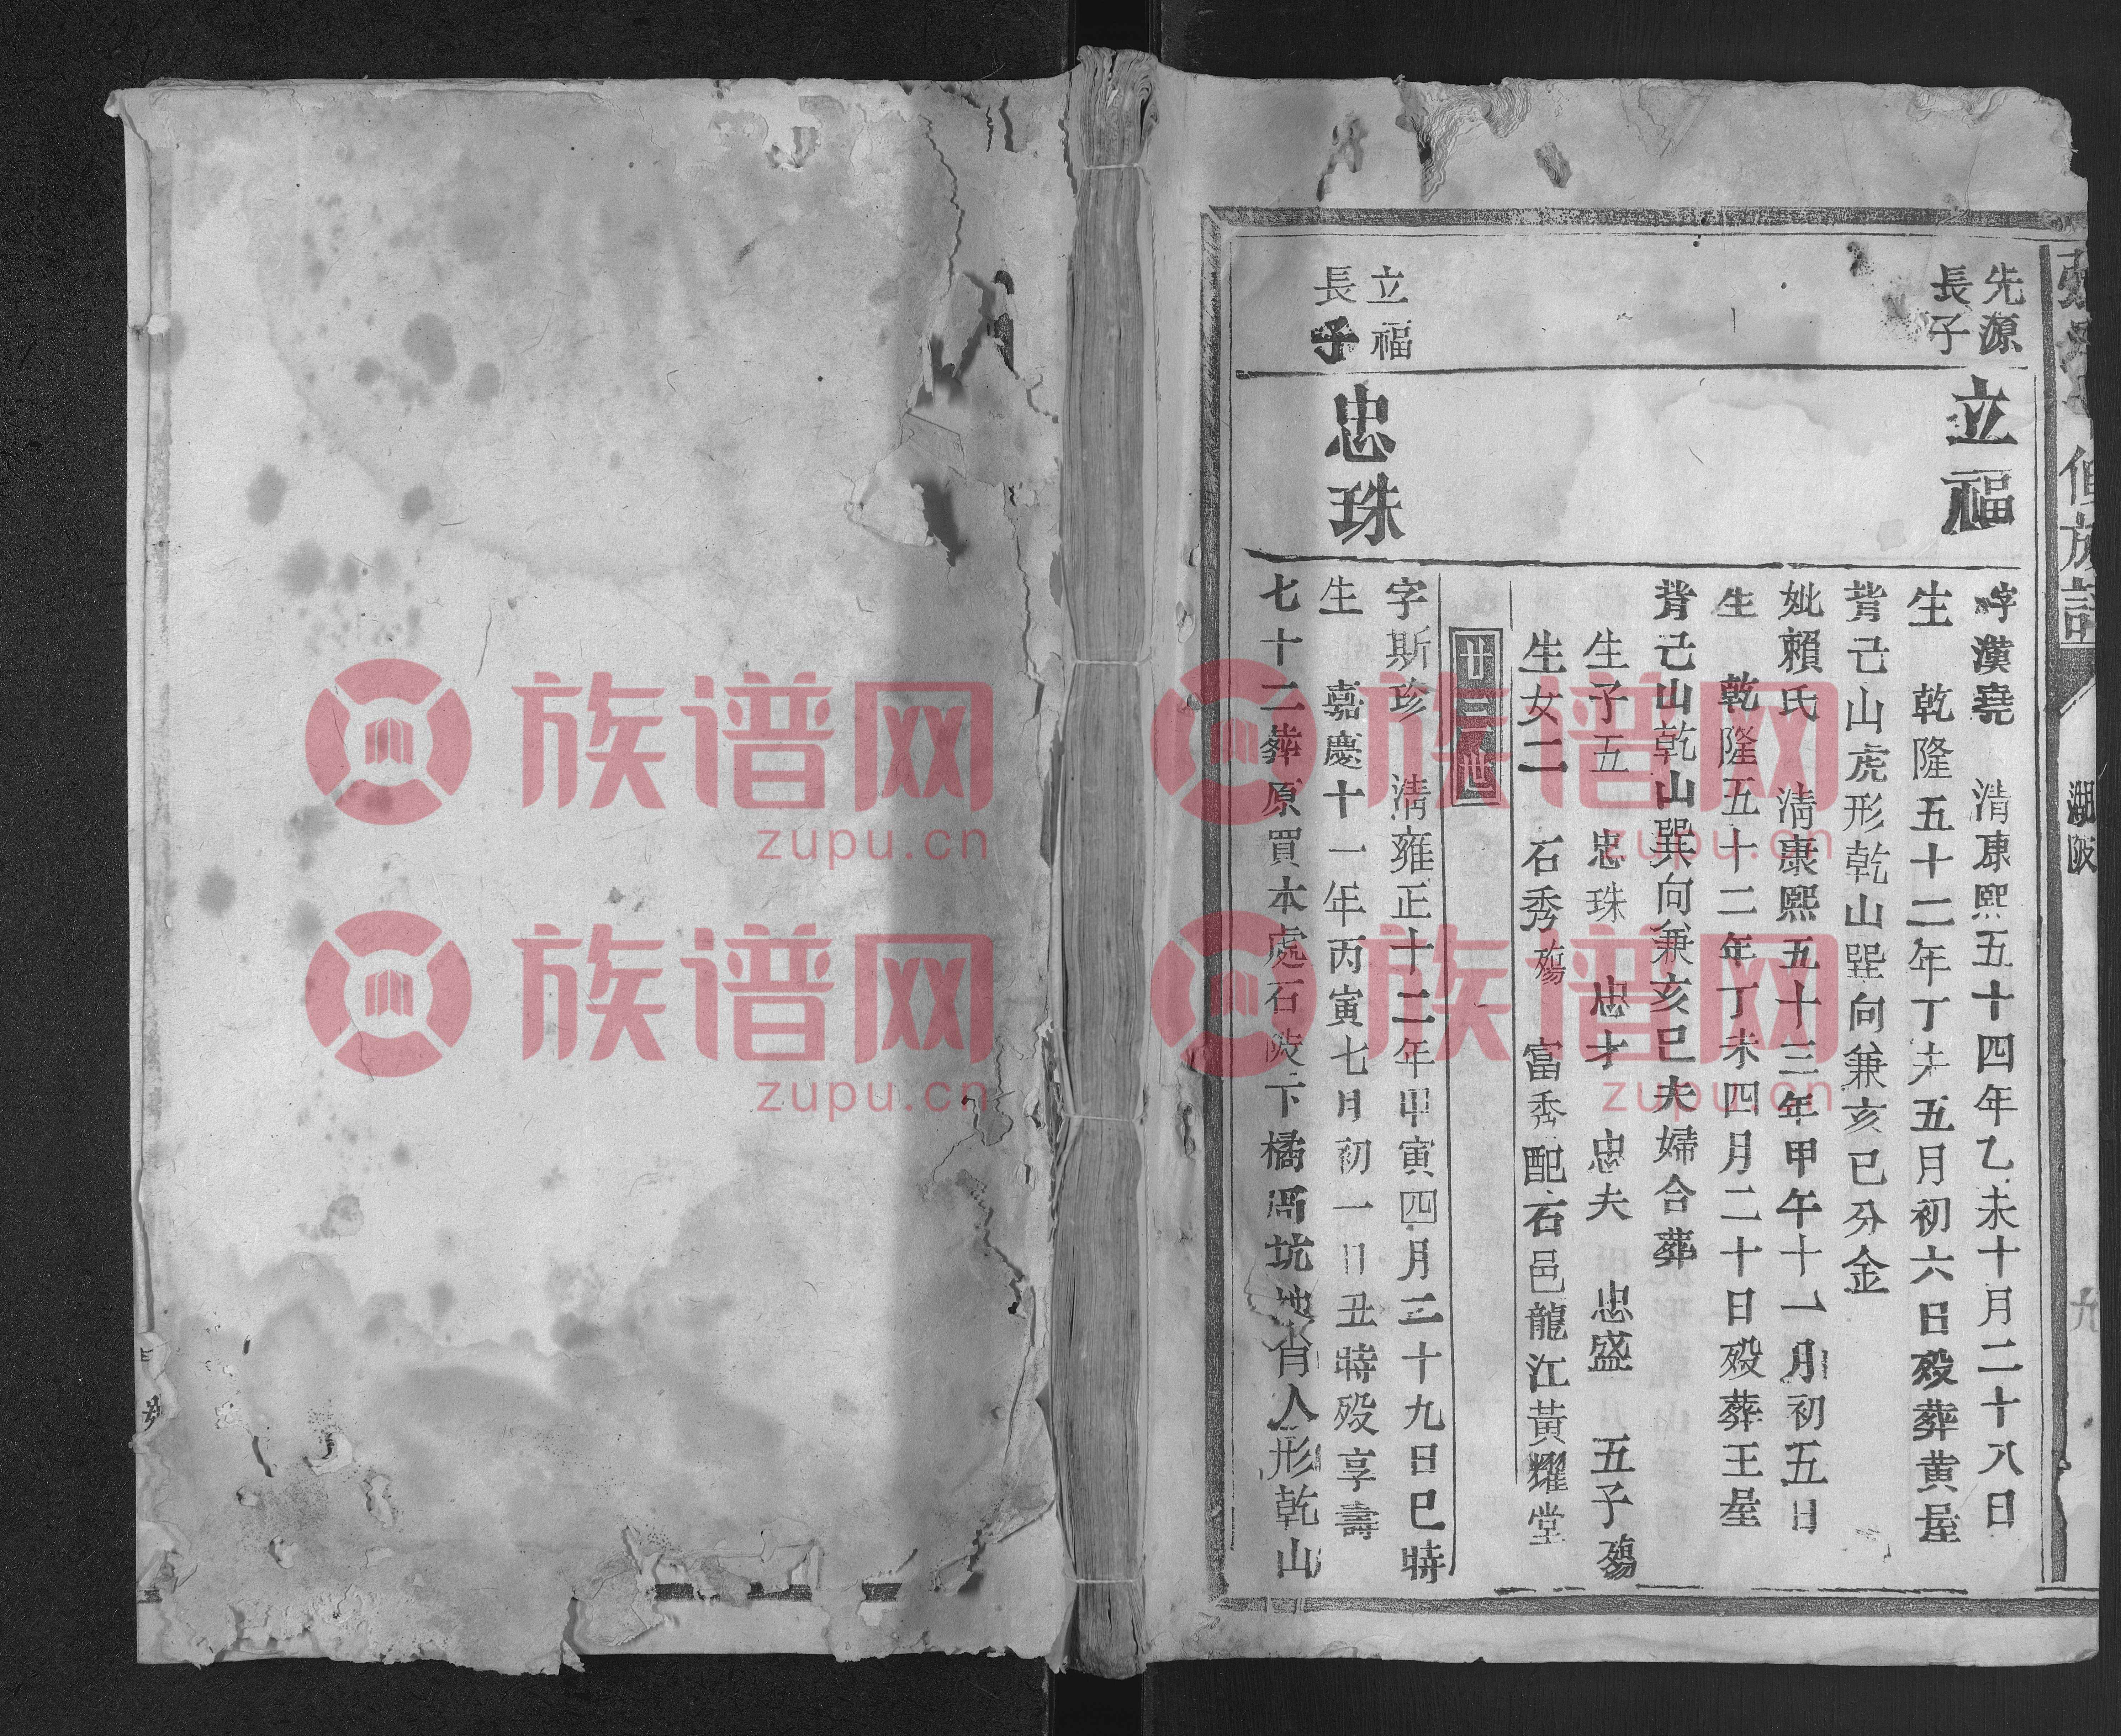 族譜
湖陂
九
先源
長子
立福
字漢堯　清康熙五十四年乙未十月二十八日
生　乾隆五十二年丁未五月初六日歿葬黄屋
背己山虎形乾山巽向兼亥已分金
妣賴氏　清康熙五十三年甲午十一月初五日
生　乾隆五十二年丁未四月二十日歿葬王屋
背己山乾山巽向兼亥巳夫婦合葬
生子五　忠珠　忠才　忠夫　忠盛　五子殤
生女二　石秀殤　富秀配石邑龍江黄耀堂
廿三世
立福
長子
忠珠
字斯珍　清雍正十二年甲寅四月二十九日巳時
生　嘉慶十一年丙寅七月初一日丑時歿享壽
七十二葬原買本處石陂下橘 坑 肖人形乾山
族谱网
zupu.cn
族谱网
zupu.cn
族谱网
zupu.cn
族谱网
zupu.cn